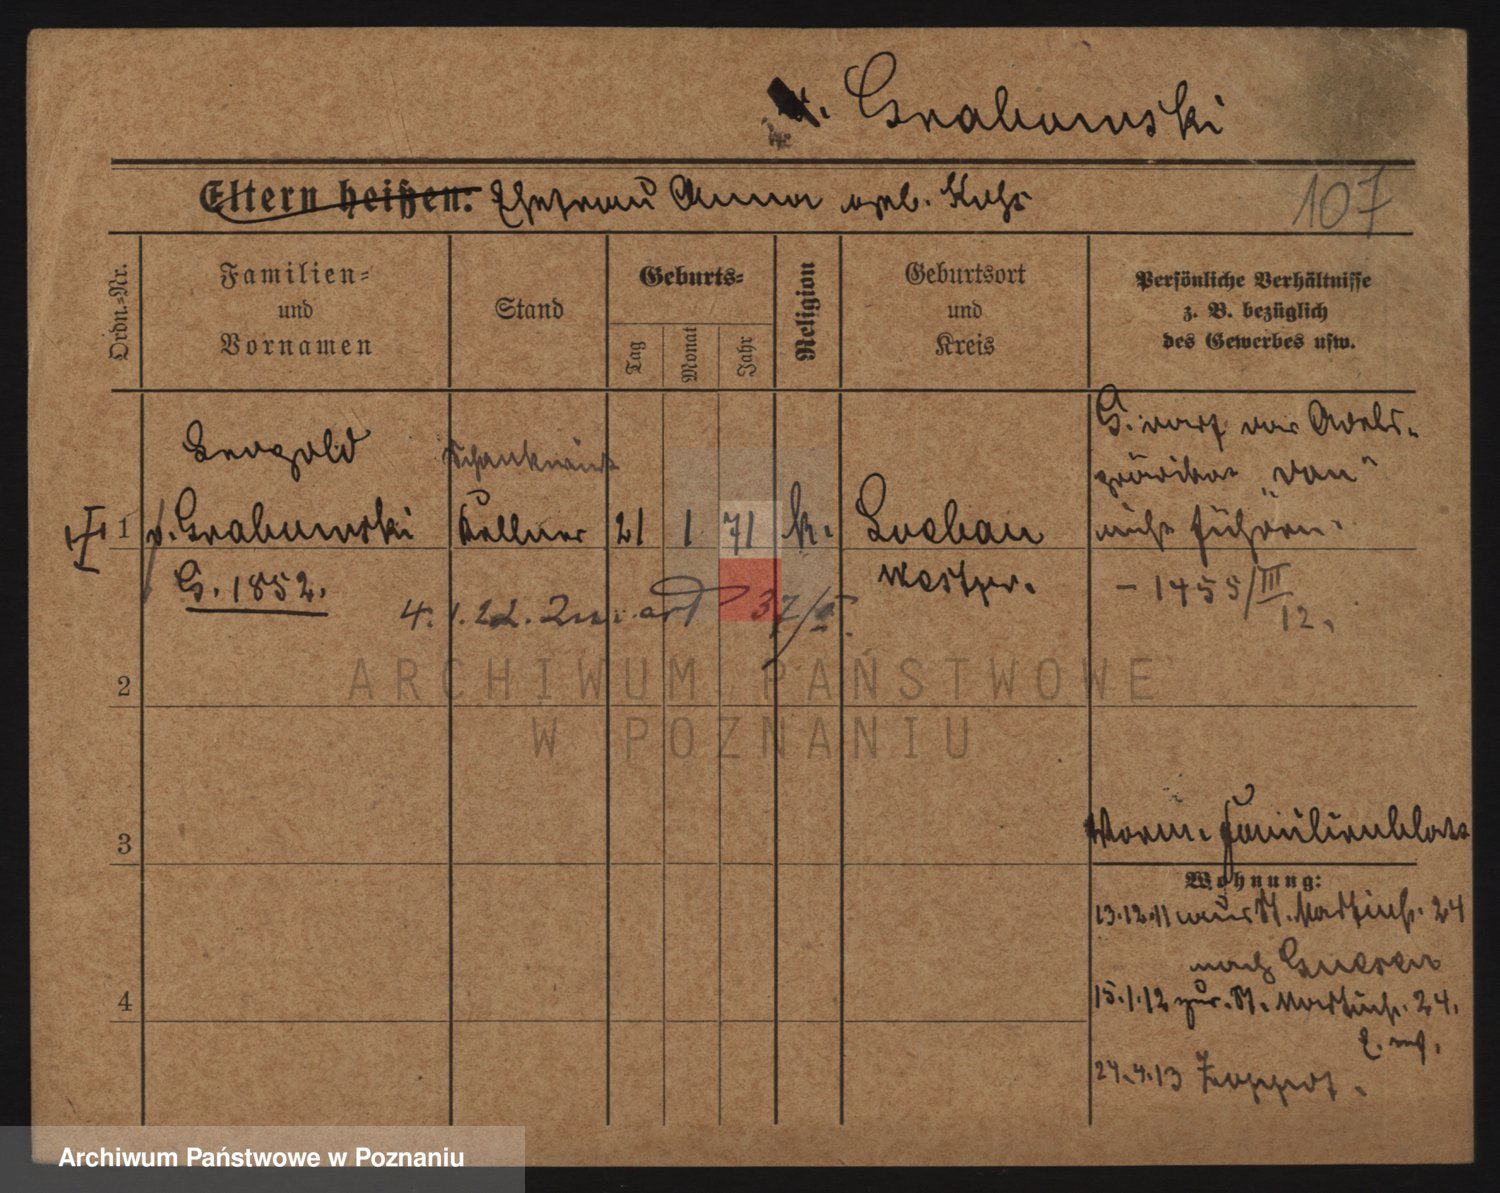 v. Grabowski
Eltern heißen: Ehefrau Anna geb. Kohs
107
Ordn.-Nr.
Familien-
und
Vornamen
Stand
Geburts-
Tag
Monat
Jahr
Religion
Geburtsort
und
Kreis
Persönliche Verhältnisse
z. B. bezüglich
des Gewerbes usw.
Leopold
Schankwirt
1 v. Grabowski Kellner 21 1 71 k. Loebau
G. 1852.
Westpr.
4. 1. 22.
G. darf das Adels-
prädikat „von“
nicht führen.
– 1455/III
12.
2
3
4
Vorm. Familienblatt
Wohnung:
13.12.11 aus St. Martinstr. 24
nach Gnesen
15.1.12 zur. St. Martinstr. 24.
24.4.13 Zoppot.
ARCHIWUM PAŃSTWOWE
W POZNANIU
Archiwum Państwowe w Poznaniu